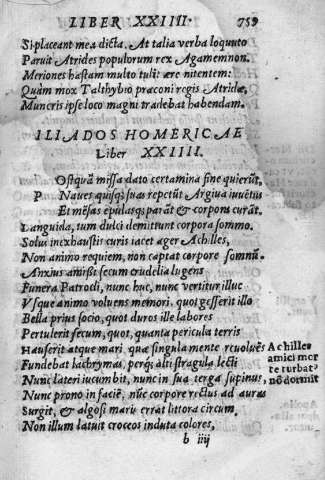 LIBER XXIIII. 759
Si placeant mea dicta. At talia verba loquuto
Paruit Atrides populorum rex Agamemnon.
Meriones hastam multo tulit ære nitentem:
Quam mox Talthybio præconi regis Atridæ,
Muneris ipse loco magni tradebat habendam.
ILIADOS HOMERICAE
Liber XXIIII.
Ostquã missa dato certamina fine quierũt,
P Naues quisq; suas repetũt Argiua iuuẽtus
Et mẽsas epulasq; parãt & corpora curãt.
Languida, tum dulci demittunt corpora somno.
Solus inexhaustis curis iacet æger Achilles,
Non animo requiem, non captat corpore somnũ.
Anxius amissi secum crudelia lugens
Funera Patrocli, nunc huc, nunc vertitur illuc
Vsque animo voluens memori, quot gesserit illo
Bella prius socio, quot duros ille labores
Pertulerit secum, quot, quanta pericula terris
Hauserit atque mari, quæ singula mente reuoluẽs
Fundebat lachrymas, perq; alti stragula lecti
Nunc lateri incumbit, nunc in sua terga supinus,
Nunc prono in faciẽ, nũc corpore rectus ad auras
Surgit, & algosi maris errat littora circum,
Non illum latuit croceos induta colores,
Achilles
amici mor
te turbat9
nõ dormit
b iiij